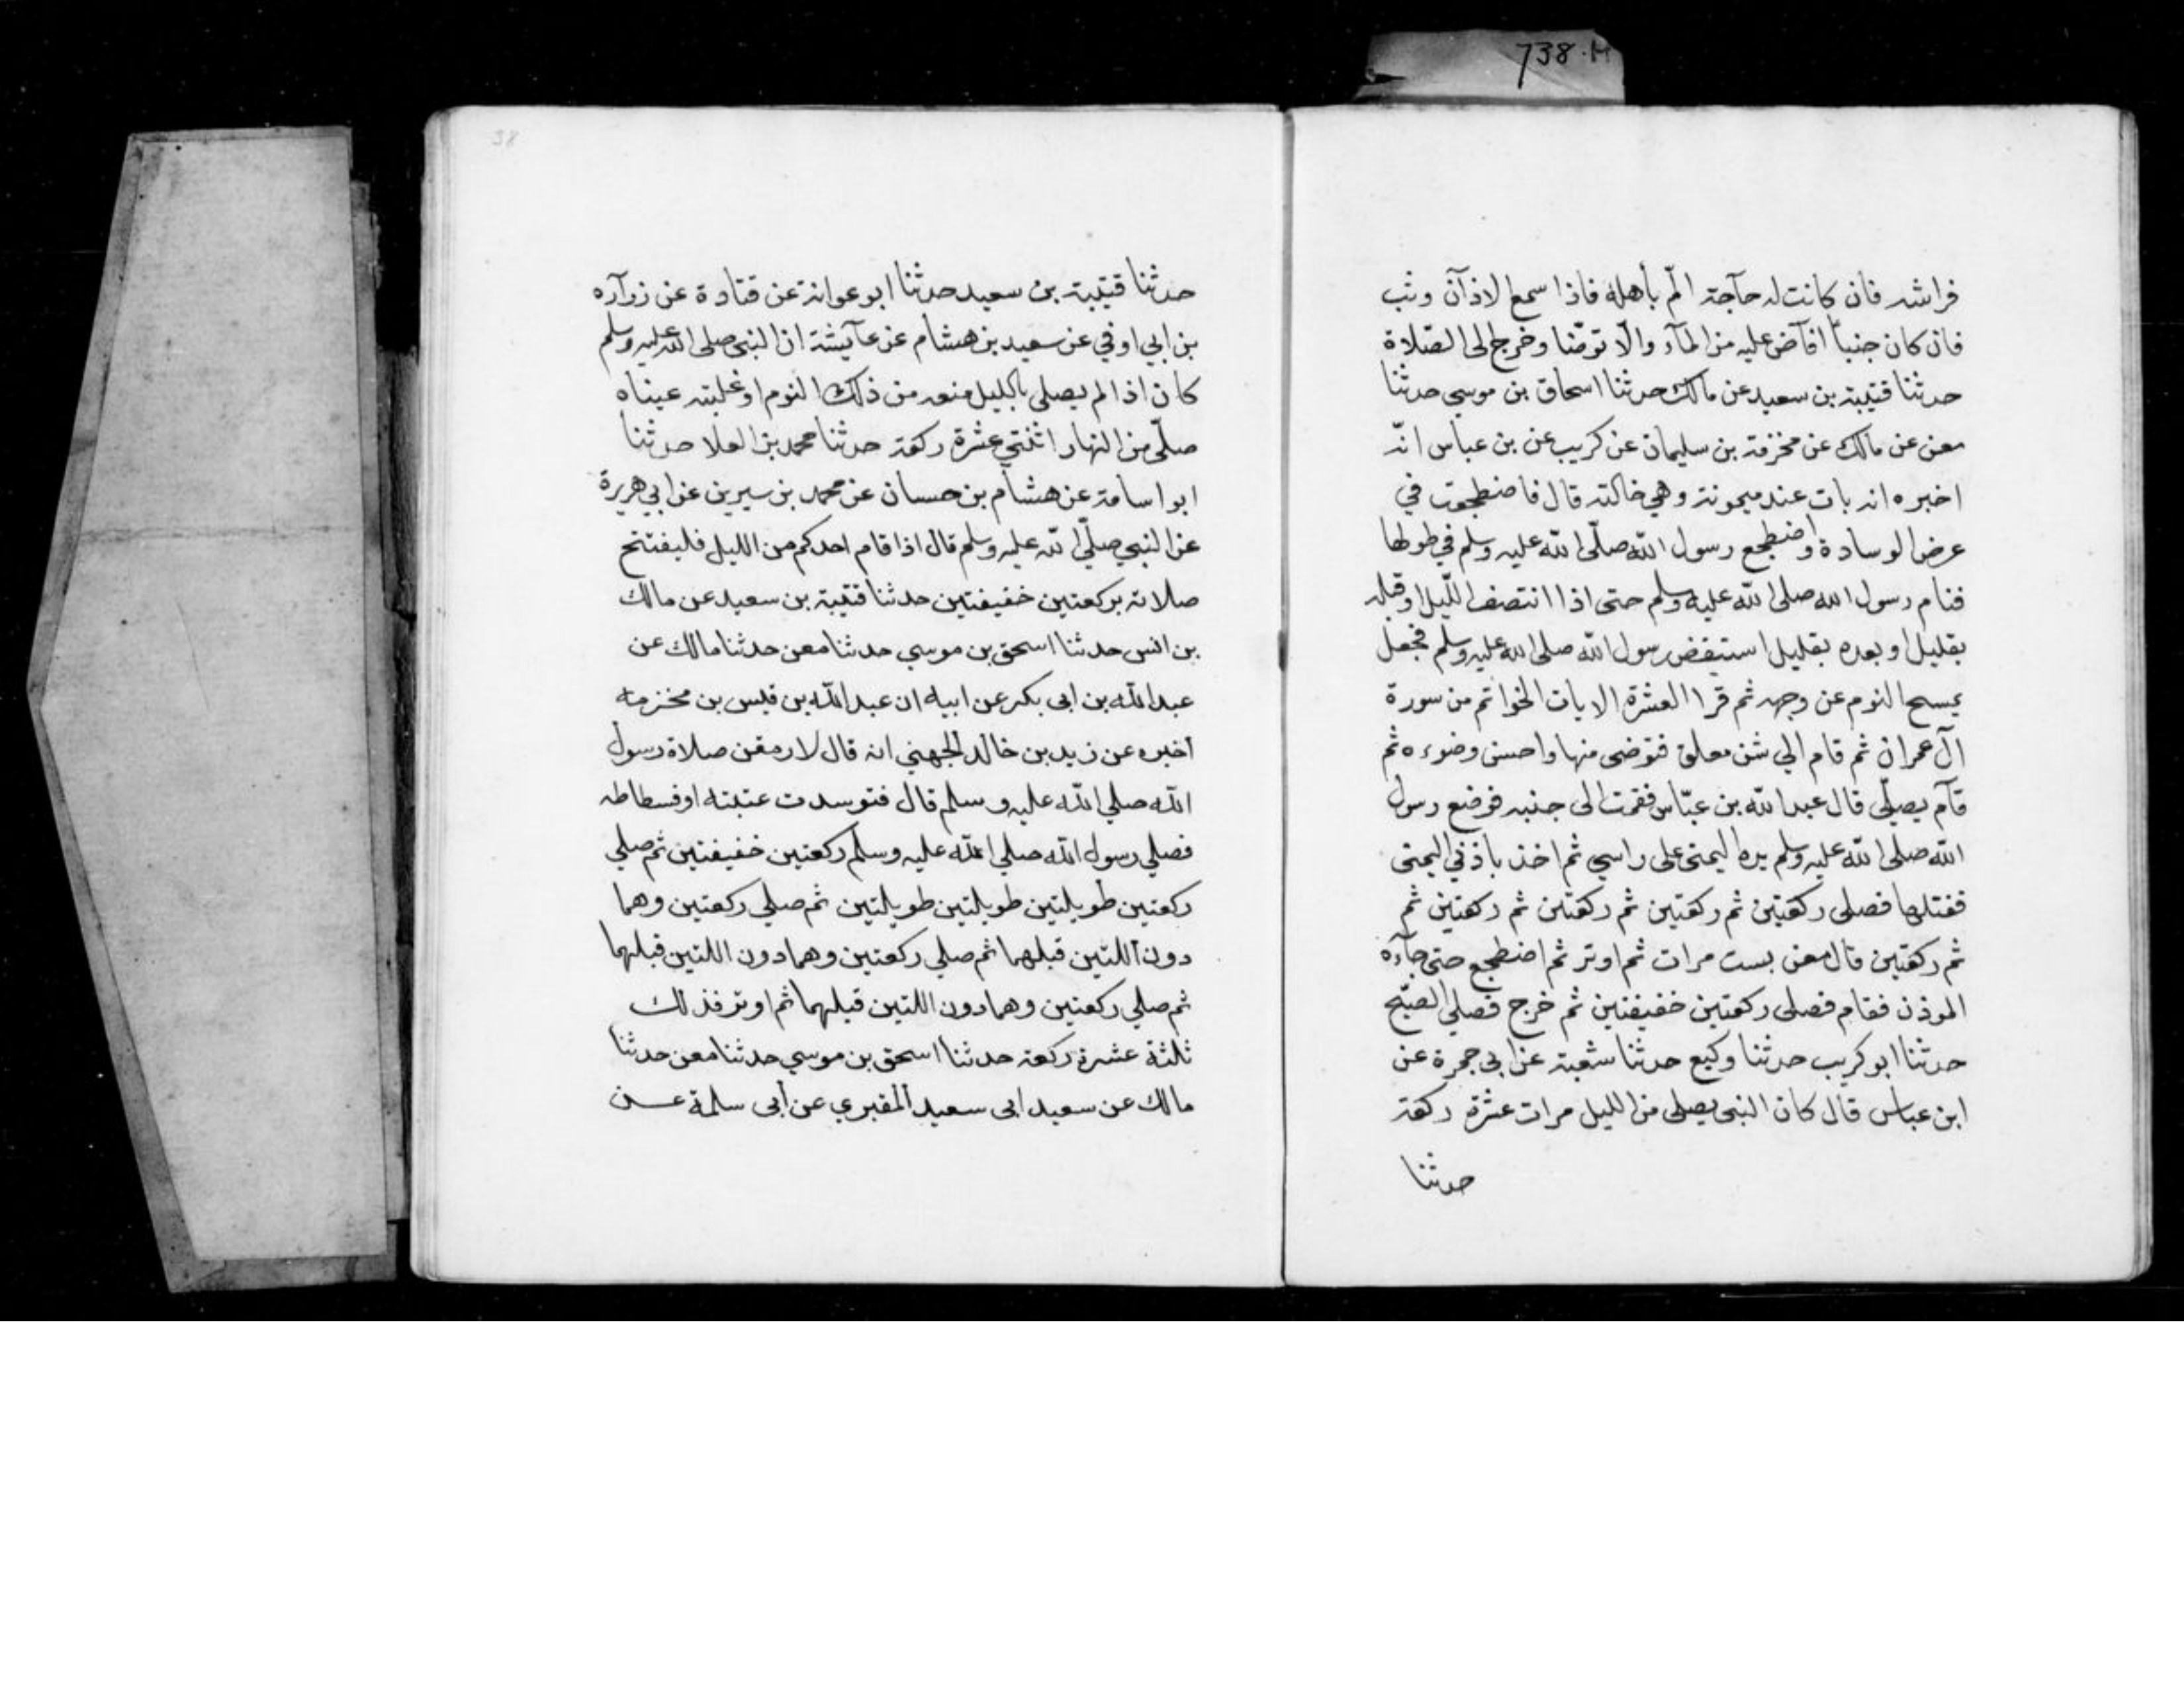 738.H
فراشه فان كانت له حآجة المّ بأهله فاذا سمع الاذآن وثب
فان كان جنباً افآض عليه من المآء والّا توضّا وخرج الى الصّلاة
حدثنا قتيبة بن سعيد عن مالك حدثنا اسحاق بن موسي حدثنا
معن عن مالك عن مخزمة بن سليمان عن كريب عن بن عباس انّه
اخبره انه بات عند ميمونة وهي خالته قال فاضطجعت في
عرض الوسادة واضطجع رسول الله صلّى الله عليه وسلم في طولها
فنام رسول الله صلى الله عليه وسلم حتى اذا انتصف اللّيل او قبله
بقليل او بعده بقليل استيقض رسول الله صلى الله عليه وسلم فجعل
يمسح النوم عن وجهه ثم قرا العشرة الايات الخواتم من سورة
آل عمران ثم قام الي شن معلق فتوضى منها واحسن وضوءه ثم
قآم يصلّي قال عبد الله بن عبّاس فقمت الى جنبه فوضع رسول
الله صلى الله عليه وسلم يده اليمنى على راسي ثم اخذ باذني اليمنى
ففتلها فصلى ركعتين ثم ركعتين ثم ركعتين ثم ركعتين ثم
ثم ركعتين قال معن بست مرات ثم اوتر ثم اضطجع حتى جآءه
الموذن فقام فصلى ركعتين خفيفتين ثم خرج فصلي الصبّح
حدثنا ابو كريب حدثنا وكيع حدثنا شعبة عن ابي جمرة عن
ابن عباس قال كان النبى يصلى من الليل مرات عشرة ركعة
حدثنا
38
حدثنا قتيبة بن سعيد حدثنا ابو عوانة عن قتادة عن زرآره
بن ابي اوفي عن سعيد بن هشام عن عآئيشة ان النبى صلى الله عليه وسلم
كان اذا لم يصلى بالليل منعه من ذلك النوم او غلبته عيناه
صلّى من النهار اثنتي عشرة ركعة حدثنا محمد بن العلا حدثنا
ابو اسامة عن هشام بن حسان عن محمد بن سيرين عن ابي هريرة
عن النبي صلّى الله عليه وسلم قال اذا قام احدكم من الليل فليفتتح
صلاته بركعتين خفيفتين حدثنا قتيبة بن سعيد عن مالك
بن انس حدثنا اسحق بن موسي حدثنا معن حدثنا مالك عن
عبد الله بن ابى بكر عن ابيه ان عبد الله بن قيس بن مخزمة
اخبره عن زيد بن خالد الجهني انه قال لارمقن صلاة رسول
الله صلي الله عليه وسلم قال فتوسدت عتبته او فسطاطه
فصلي رسول الله صلي الله عليه وسلم ركعتين خفيفتين ثم صلي
ركعتين طويلتين طويلتين طويلتين ثم صلي ركعتين وهما
دون اللتين قبلهما ثم صلي ركعتين وهما دون اللتين قبلهما
ثم صلي ركعتين وهما دون اللتين قبلهما ثم اوتر فذلك
ثلثة عشرة ركعة حدثنا اسحق بن موسي حدثنا معن حدثنا
مالك عن سعيد ابى سعيد المقبري عن أبى سلمة عن